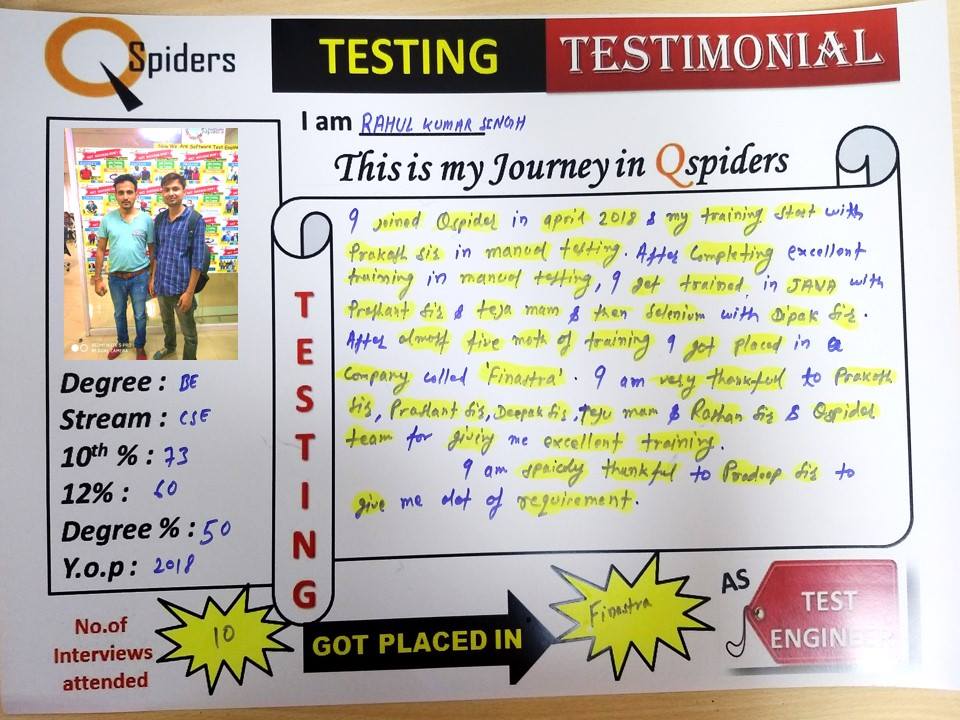 QSpiders
TESTING TESTIMONIAL
I am RAHUL KUMAR SINGH
This is my Journey in Qspiders
Now We Are Software Test Engine
REDMI NOTE 5 PRO
MI DUAL CAMERA
Degree : BE
Stream : CSE
10th % : 73
12% : 60
Degree % : 50
Y.o.p : 2018
TESTING
I joined Qspider in april 2018 & my training start with
Prakash Sir in manual testing. After Completing excellent
training in manual testing, I get trained in JAVA with
Prashant Sir & teja mam & then Selenium with Dipak Sir.
After almost five moth of training I got placed in a
Company called 'Finastra'. I am very thankful to Prakash
Sir, Prashant Sir, Deepak Sir, Teju mam & Roshan Sir & Qspider
team for giving me excellent training.
I am spaicily thankful to Pradeep Sir to
give me alot of requirement.
No.of
Interviews
attended
10
GOT PLACED IN
Finastra
AS
TEST
ENGINEER